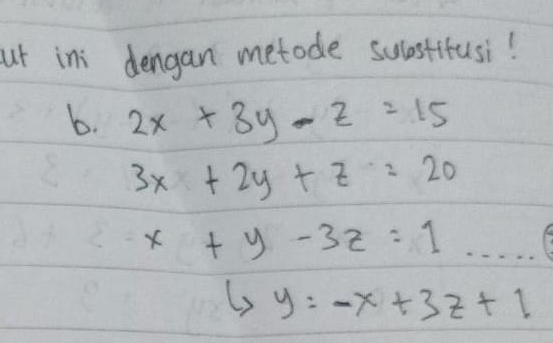 ut ini dengan metode substitusi!
b. 2x + 3y - z = 15
3x + 2y + z = 20
x + y - 3z = 1 .....
↳ y = -x + 3z + 1